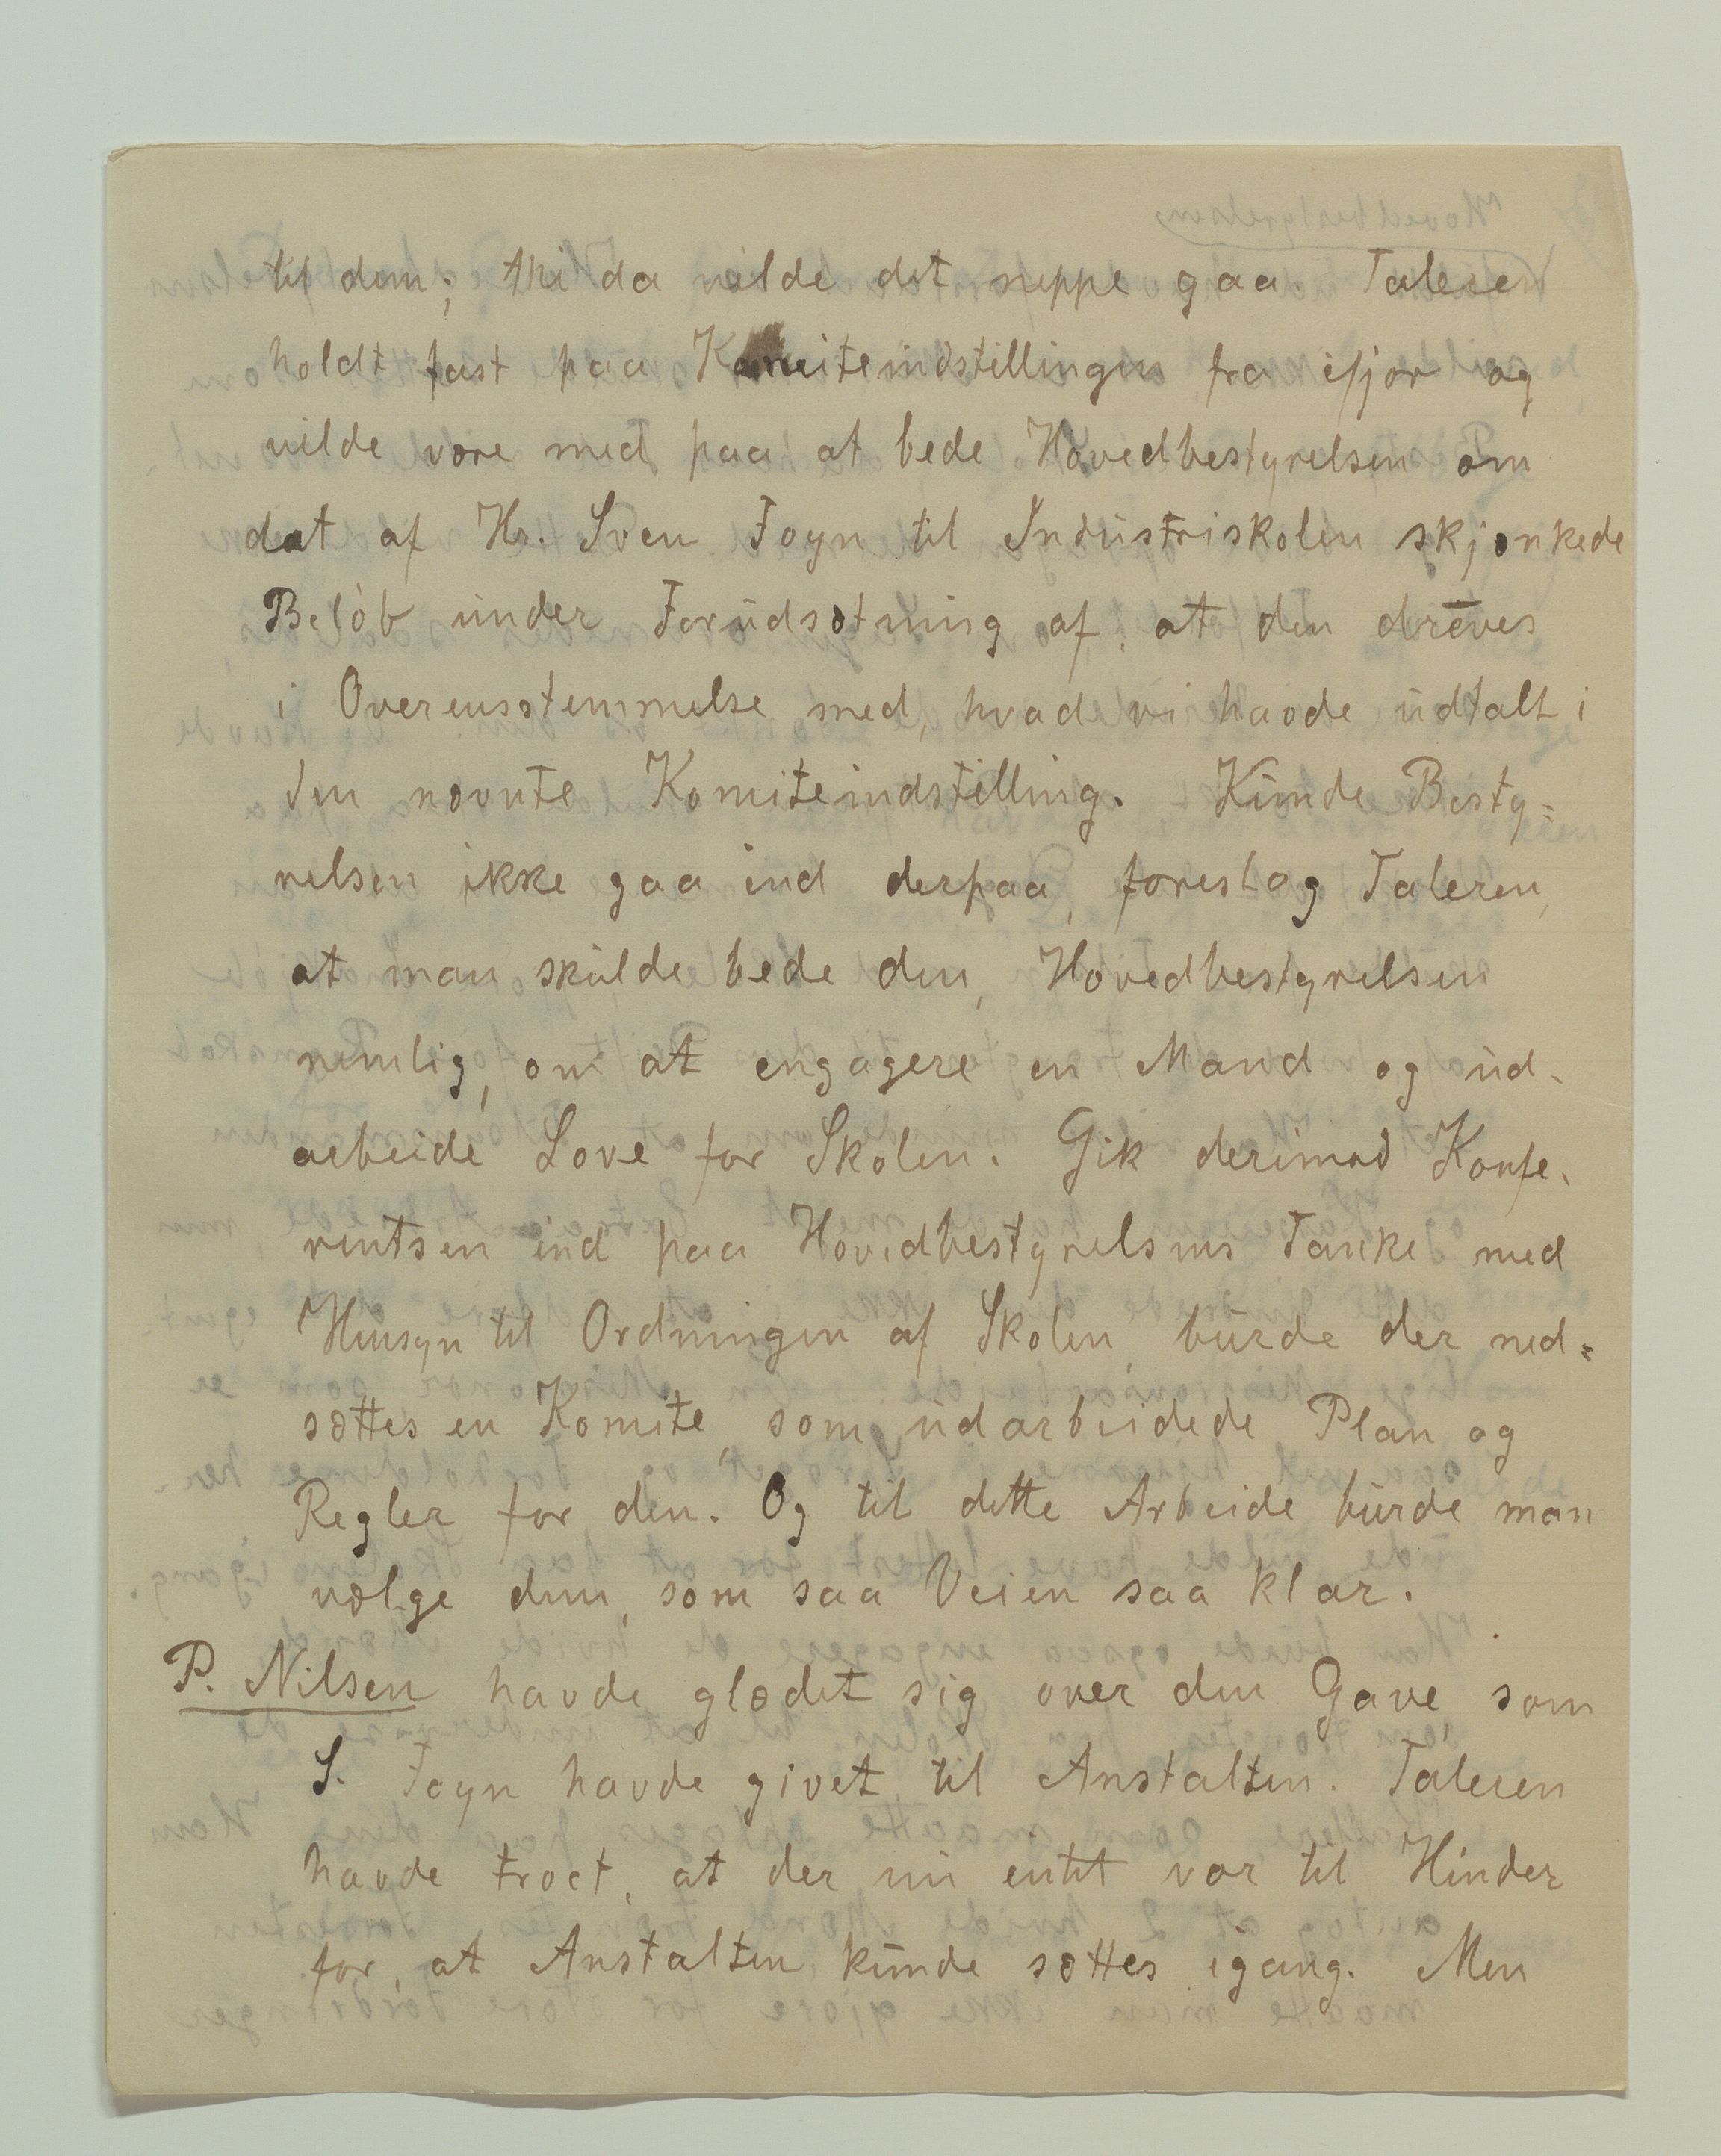 til dem; thi da vilde det neppe gaa. Taleren
holdt fast paa Komiteindstillingen fra ifjor og
vilde være med paa at bede Hovedbestyrelsen om
det af Hr. Sven Foyn til Industriskolen skjænkede
Beløb under Forudsætning af, at den drēves
i Overensstemmelse med, hvad vi havde udtalt i
den nævnte Komiteindstilling. Kunde Besty=
relsen ikke gaa ind derpaa, foreslog Taleren,
at man skulde bede den, Hovedbestyrelsen
nemlig, om at engagere en Mand og ud-
arbeide Love for Skolen. Gik derimod Konfe-
rentsen ind paa Hovedbestyrelsens Tanke med
Hensyn til Ordningen af Skolen, burde der ned=
sættes en Komite, som udarbeidede Plan og
Regler for den. Og til dette Arbeide burde man
vælge dem, som saa Veien saa klar.
P. Nilsen havde glædet sig over den Gave, som
S. Foyn havde givet til Anstalten. Taleren
havde troet, at der nu intet var til Hinder
for, at Anstalten kunde sættes igang. Men